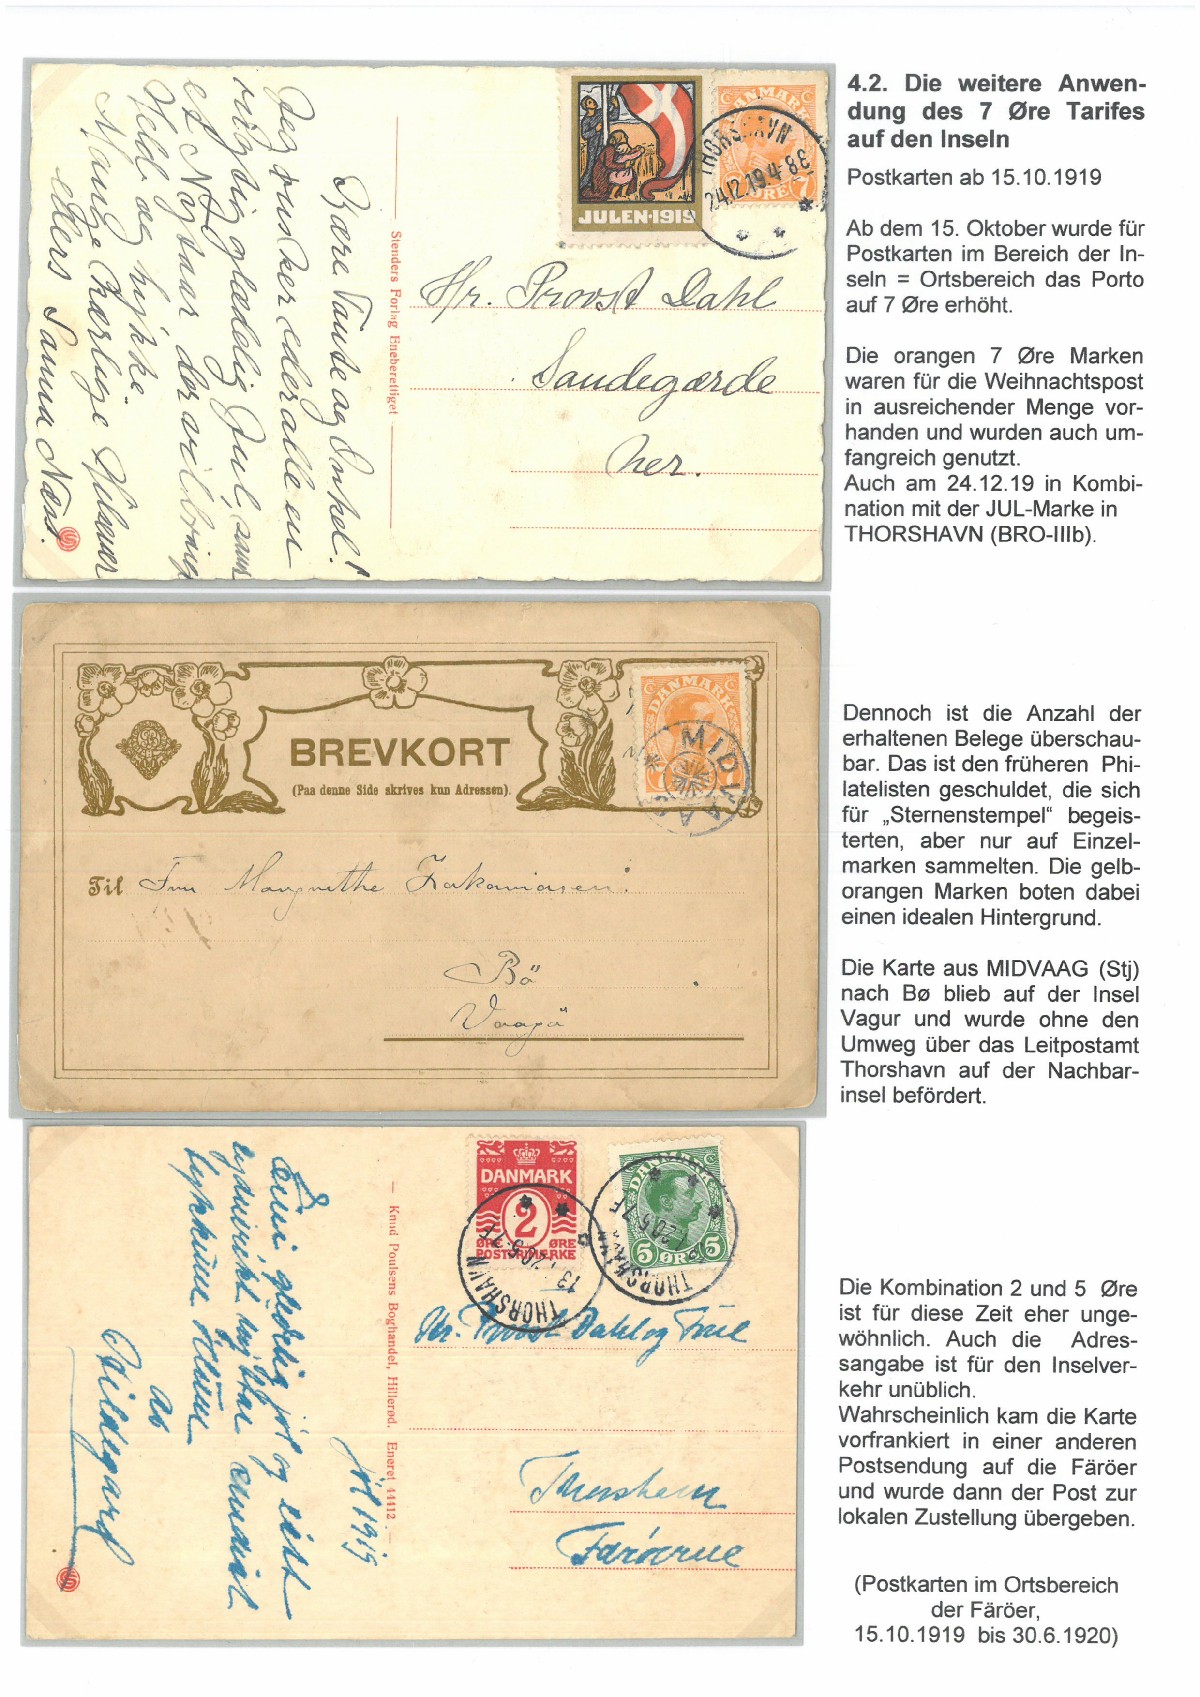 4.2. Die weitere Anwen-
dung des 7 Øre Tarifes
auf den Inseln
Postkarten ab 15.10.1919
Ab dem 15. Oktober wurde für
Postkarten im Bereich der In-
seln = Ortsbereich das Porto
auf 7 Øre erhöht.
Die orangen 7 Øre Marken
waren für die Weihnachtspost
in ausreichender Menge vor-
handen und wurden auch um-
fangreich genutzt.
Auch am 24.12.19 in Kombi-
nation mit der JUL-Marke in
THORSHAVN (BRO-IIIb).
JULEN·1919
DANMARK
ØRE 7
THORSHAVN
24.12.19 4-8E
Kjære Tante og Onkel!
Jeg ønsker eder alle en
rigtig glædelig Jul, samt
et Nytaar der vil bringe
Held og lykke.
Mange kærlige Hilsener
Stenders Forlag Eneberettiget
Hr. Provst Dahl
Sandegærde
her.
BREVKORT
(Paa denne Side skrives kun Adressen).
DANMARK
7
MIDVAAG
Til Fru Margrethe Zakariasen.
Bö
Vaagö
Dennoch ist die Anzahl der
erhaltenen Belege überschau-
bar. Das ist den früheren Phi-
latelisten geschuldet, die sich
für „Sternenstempel“ begeis-
terten, aber nur auf Einzel-
marken sammelten. Die gelb-
orangen Marken boten dabei
einen idealen Hintergrund.
Die Karte aus MIDVAAG (Stj)
nach Bø blieb auf der Insel
Vagur und wurde ohne den
Umweg über das Leitpostamt
Thorshavn auf der Nachbar-
insel befördert.
DANMARK
2
ØRE ØRE
POSTFRIMÆRKE
THORSHAVN
DANMARK
5 ØRE 5
THORSHAVN
Hr. Provst Dahl og Frue
Thorshavn
Färöerne
gledelig jól og
Hildegard
Jól 1919
— Knud Poulsens Boghandel, Hillerød. Eneret 44112. —
Die Kombination 2 und 5 Øre
ist für diese Zeit eher unge-
wöhnlich. Auch die Adres-
sangabe ist für den Inselver-
kehr unüblich.
Wahrscheinlich kam die Karte
vorfrankiert in einer anderen
Postsendung auf die Färöer
und wurde dann der Post zur
lokalen Zustellung übergeben.
(Postkarten im Ortsbereich
der Färöer,
15.10.1919 bis 30.6.1920)